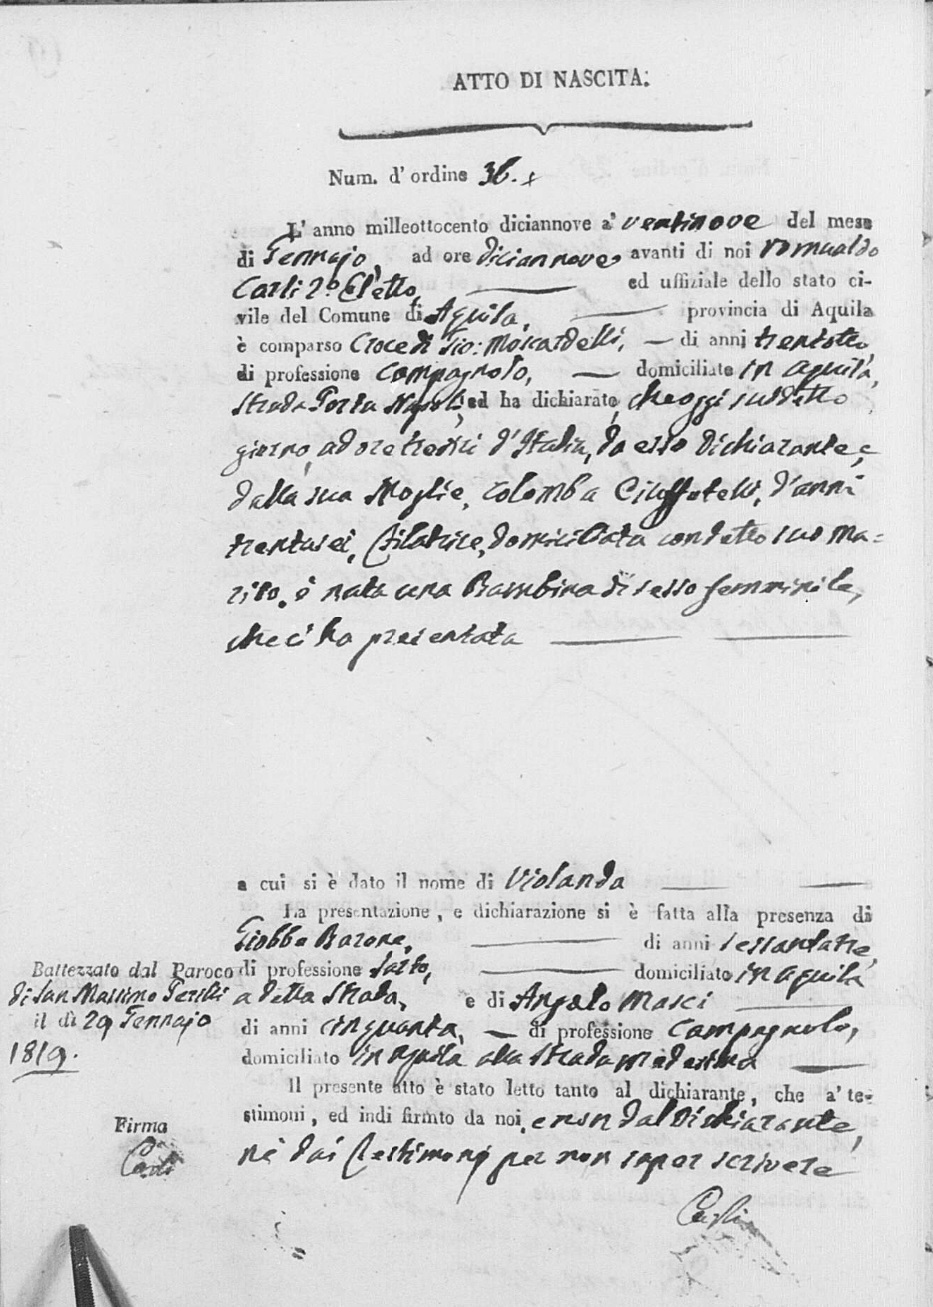 ATTO DI NASCITA.
Num. d'ordine 36.
L'anno milleottocento diciannove a' ventinove del mese
di Gennajo, ad ore diciannove avanti di noi Romualdo
Carli 2.º Eletto, ed uffiziale dello stato ci-
vile del Comune di Aquila, provincia di Aquila
è comparso Croce di Gio: Moscardelli, di anni trentotto
di professione Campagnolo, domiciliato in Aquila,
Strada Porta Napoli, ed ha dichiarato, che oggi suddetto
giorno, ad ore tredici d'Italia, da esso Dichiarante, e
dalla sua Moglie, Colomba d'anni
trentasei, filatrice, domiciliata con detto suo Ma=
rito. è nata una Bambina di sesso femminile,
che ci ha presentata
a cui si è dato il nome di Violanda
La presentazione, e dichiarazione si è fatta alla presenza di
Giobbe Barone, di anni sessantatre,
di professione Sarto, domiciliato in Aquila
a detta Strada, e di Angelo Masci
di anni cinquanta, di professione Campagnolo,
domiciliato in Aquila alla Strada medesima
Il presente atto è stato letto tanto al dichiarante, che a' te-
stimoni, ed indi firmto da noi, e non dal Dichiarante,
nè dai Testimonj per non saper scrivere
Carli
Battezzato dal Paroco
di San Massimo
il dì 29 Gennajo
1819.
Firma
Carli